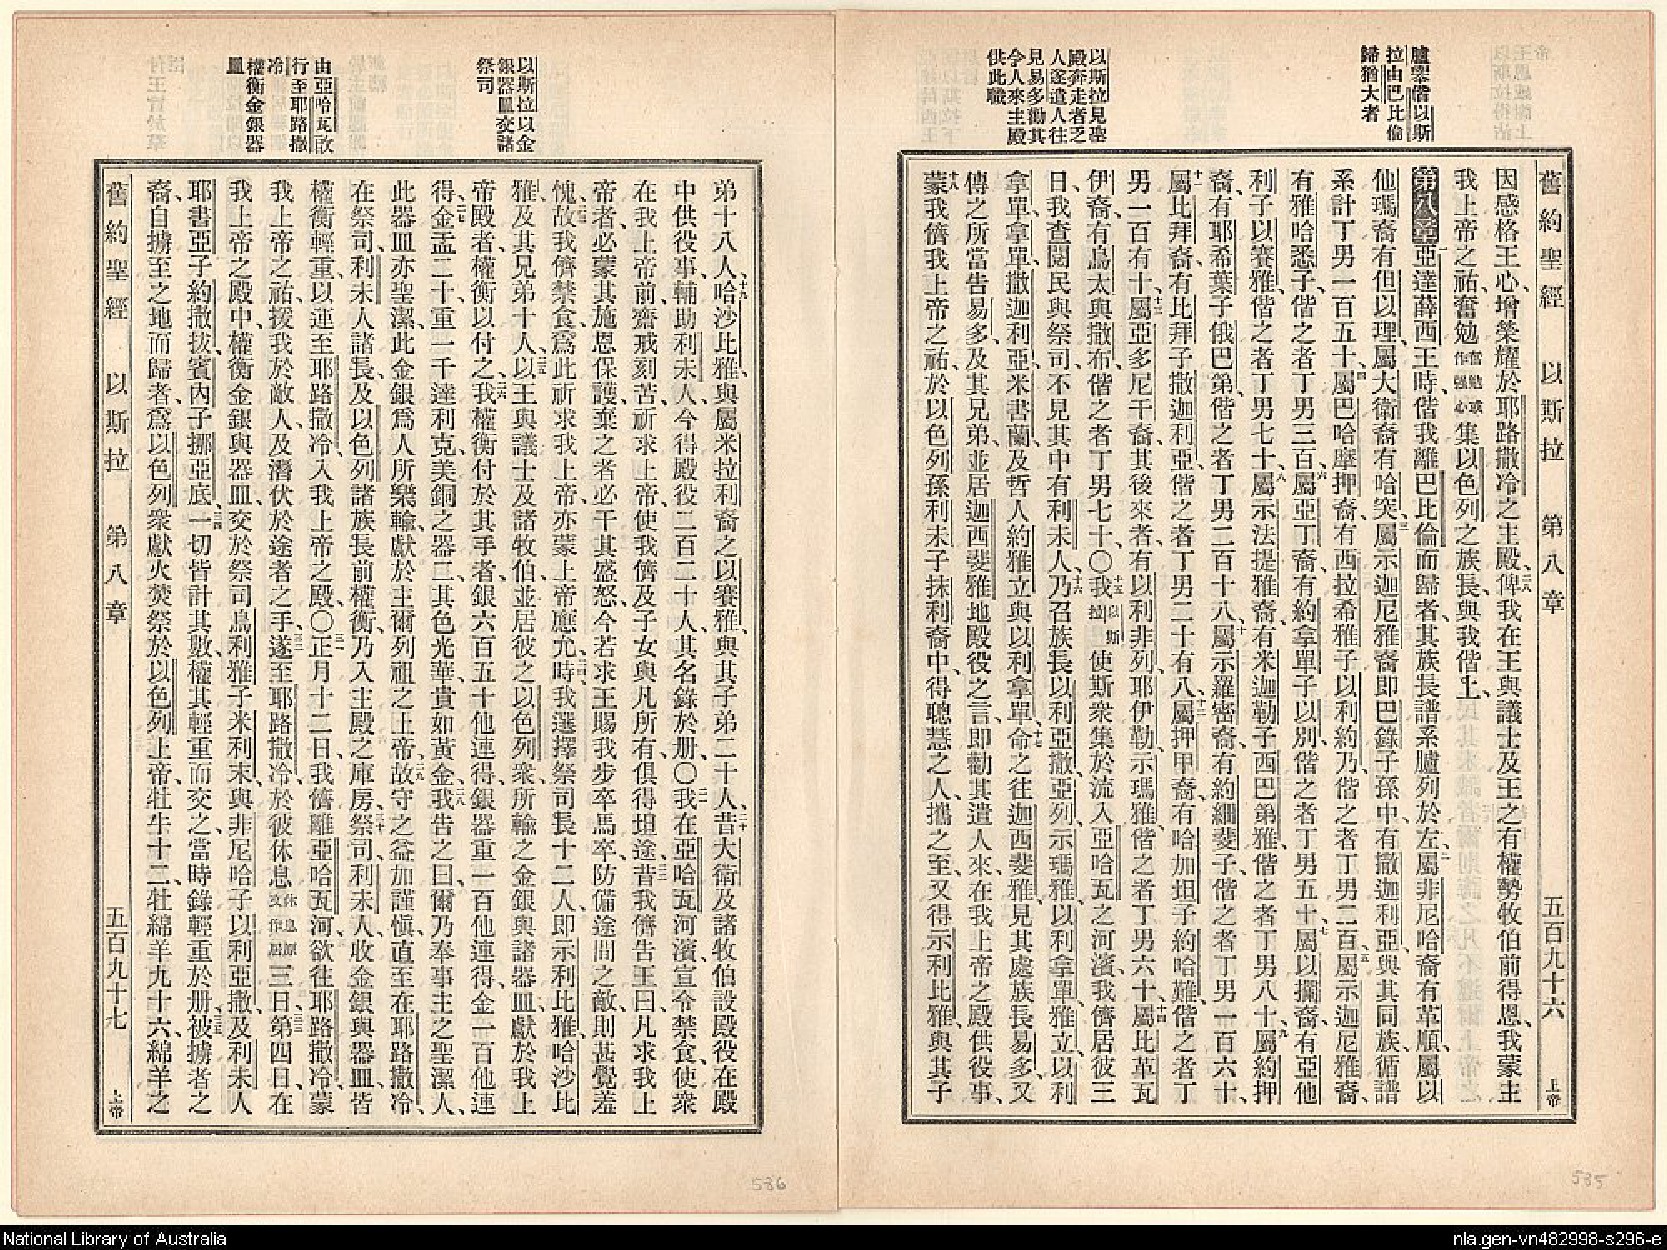 臚舉偕以斯
拉由巴比倫
歸猶大者
以斯拉見聖
殿奔走者之
人遂遣人往
見易多勸其
令人來主殿
供此職
舊約聖經 以斯拉 第八章 五百九十六 上帝
因感格王心、增榮耀於耶路撒冷之主殿、二八俾我在王與議士及王之有權勢牧伯前得恩、我蒙主
我上帝之祐、奮勉集以色列之族長、與我偕上、
第八章 一亞達薛西王時、偕我離巴比倫而歸者、其族長譜系臚列於左、二屬非尼哈裔有革順、屬以
他瑪裔有但以理、屬大衛裔有哈突、三屬示迦尼雅裔即巴錄子孫中有撒迦利亞、與其同族循譜
系計丁男一百五十、四屬巴哈摩押裔有西拉希雅子以利約乃、偕之者丁男二百、五屬示迦尼雅裔、
有雅哈悉子、偕之者丁男三百、六屬亞丁裔有約拿單子以別、偕之者丁男五十、七屬以攔裔有亞他
利子以賽雅、偕之者丁男七十、八屬示法提雅裔、有米迦勒子西巴第雅、偕之者丁男八十、九屬約押
裔、有耶希葉子俄巴第、偕之者丁男二百十八、十屬示羅密裔、有約細斐子、偕之者丁男一百六十、
十一屬比拜裔、有比拜子撒迦利亞、偕之者丁男二十有八、十二屬押甲裔有哈加坦子約哈難、偕之者丁
男一百有十、十三屬亞多尼干裔、其後來者、有以利非列、耶伊勒、示瑪雅、偕之者丁男六十、十四屬比革瓦
伊裔、有烏太與撒布、偕之者丁男七十、○十五我以斯拉使斯衆集於流入亞哈瓦之河濱、我儕居彼三
日、我查閱民與祭司、不見其中有利未人、十六乃召族長以利亞撒、亞列、示瑪雅、以利拿單、雅立、以利
拿單、拿單、撒迦利亞、米書蘭、及哲人約雅立、與以利拿單、十七命之往迦西斐雅、見其處族長易多、又
傳之所當告易多、及其兄弟、並居迦西斐雅地殿役之言、即勸其遣人來在我上帝之殿供役事、
十八蒙我儕我上帝之祐、於以色列孫利未子抹利裔中、得聰慧之人、攜之至、又得示利比雅、與其子
以斯拉以金
銀器皿交諸
祭司
由亞哈瓦啟
行至耶路撒
冷
權衡金銀器
皿
弟十八人、十九哈沙比雅、與屬米拉利裔之以賽雅、與其子弟二十人、二十昔大衛及諸牧伯設殿役、在殿
中供役事、輔助利未人、今得殿役二百二十人、其名錄於册、○二一我在亞哈瓦河濱、宣令禁食、使衆
在我上帝前、齋戒刻苦、祈求上帝、使我儕及子女、與凡所有、俱得坦途、二二昔我儕告王曰、凡求我上
帝者、必蒙其施恩保護、棄之者、必干其盛怒、今若求王賜我步卒馬卒、防備途間之敵、則甚覺羞
愧、二三故我儕禁食、爲此祈求我上帝、亦蒙上帝應允、二四時我選擇祭司長十二人、即示利比雅、哈沙比
雅、及其兄弟十人、二五以王與議士及諸牧伯、並居彼之以色列衆、所輸之金銀、與諸器皿、獻於我上
帝殿者、權衡以付之、二六我權衡付於其手者、銀六百五十他連得、銀器重一百他連得、金一百他連
得、二七金盂二十、重一千達利克、美銅之器二、其色光華、貴如黃金、二八我告之曰、爾乃奉事主之聖潔人、
此器皿亦聖潔、此金銀爲人所樂輸、獻於主爾列祖之上帝、二九故守之益加謹愼、直至在耶路撒冷、
在祭司、利未人諸長、及以色列諸族長前權衡、乃入主殿之庫房、三十祭司利未人收金銀與器皿、皆
權衡輕重、以運至耶路撒冷、入我上帝之殿、○三一正月十二日、我儕離亞哈瓦河、欲往耶路撒冷、蒙
我上帝之祐、援我於敵人、及潛伏於途者之手、三二遂至耶路撒冷、於彼休息三日、三三第四日、在
我上帝之殿中、權衡金銀與器皿、交於祭司烏利雅子米利末、與非尼哈子以利亞撒、及利未人
耶書亞子約撒拔、賓內子挪亞底、三四一切皆計其數、權其輕重而交之、當時錄輕重於册、三五被擄者之
裔、自擄至之地而歸者、爲以色列衆獻火焚祭於以色列上帝、牡牛十二、牡綿羊九十六、綿羊之
舊約聖經 以斯拉 第八章 五百九十七 上帝
586
585
National Library of Australia
nla.gen-vn482998-s296-e